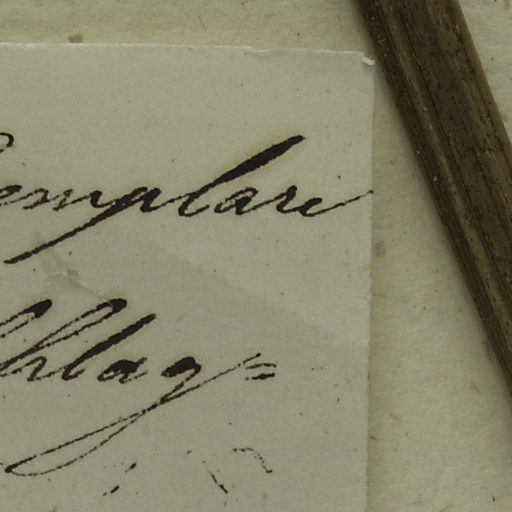 emplare
hlag=